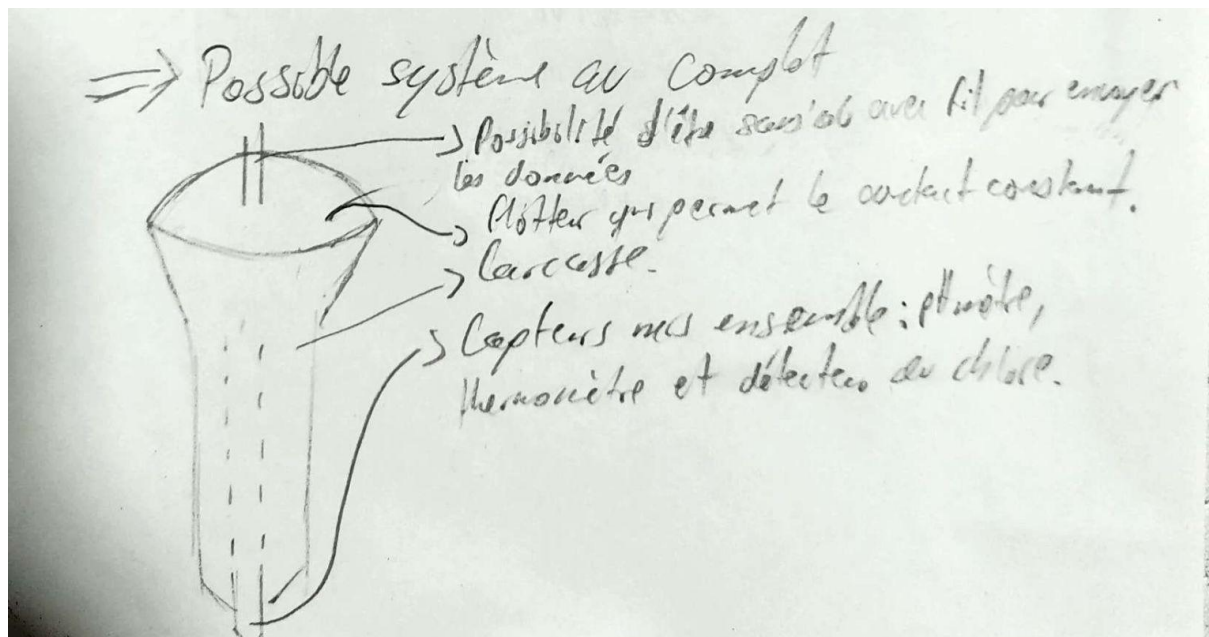 => Possible système au complet
-> Possibilité d'être sans ou avec fil pour envoyer
les données
-> Flotteur qui permet le contact constant.
-> Carcasse.
-> Capteurs mis ensemble : pHmètre,
thermomètre et détecteur du chlore.